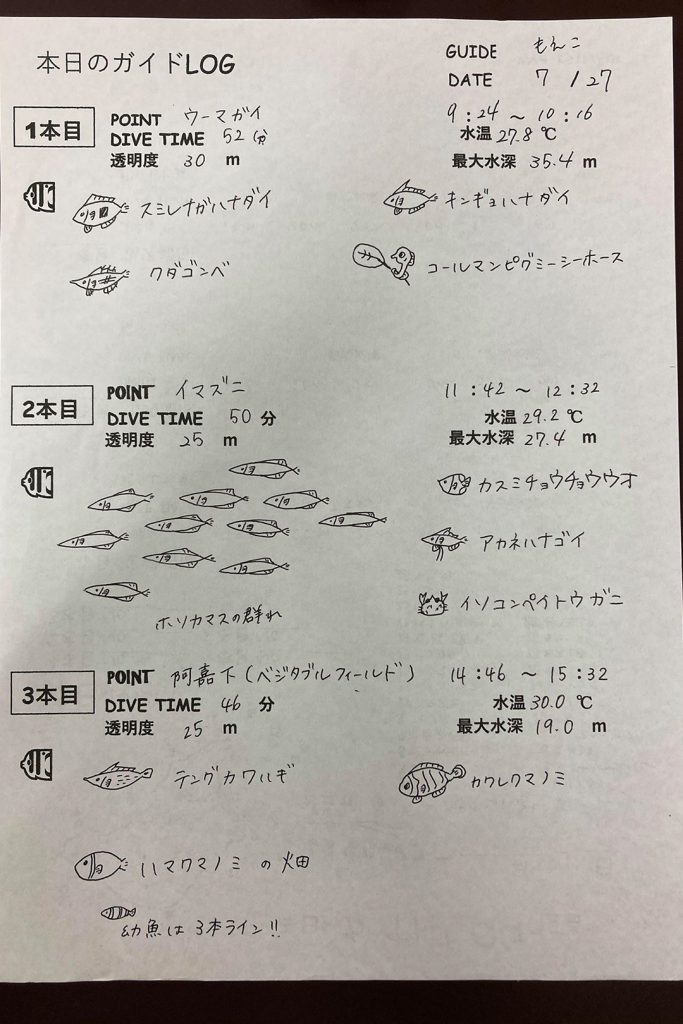 本日のガイドLOG
GUIDE もえこ
DATE 7 / 27
1本目
POINT ウーマガイ
DIVE TIME 52分
透明度 30 m
9:24 ~ 10:16
水温 27.8 ℃
最大水深 35.4 m
スミレナガハナダイ
キンギョハナダイ
クダゴンベ
コールマンピグミーシーホース
2本目
POINT イマズニ
DIVE TIME 50 分
透明度 25 m
11:42 ~ 12:32
水温 29.2 ℃
最大水深 27.4 m
カスミチョウチョウウオ
アカネハナゴイ
イソコンペイトウガニ
ホソカマスの群れ
3本目
POINT 阿嘉下(ベジタブルフィールド)
DIVE TIME 46 分
透明度 25 m
14:46 ~ 15:32
水温 30.0 ℃
最大水深 19.0 m
テングカワハギ
カクレクマノミ
ハマクマノミの畑
幼魚は3本ライン!!